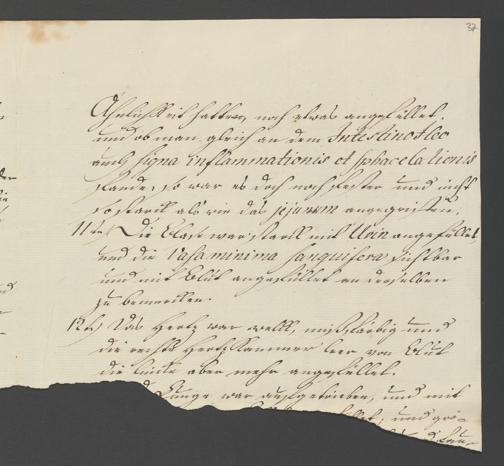 37
Ähnlichkeit hatten, noch etwas angefüllet,
und ob man gleich an dem Intestino Ileo
auch signa inflammationis et sphacelationis
fande, so war es doch noch fester und nicht
so starck als wie das jejunum angegriffen.
11tens) Die Blase war starck mit Urin angefüllet
und die Vasa minima sanguifera sichtbar
und mit Blut angefüllet an derselben
zu bemercken.
12tens) Das Hertz war welck, mißfärbig und
die rechte Hertz Kammer leer von Blut
die lincke aber mehr angefüllet.
Lunge war aufgetrieben, und mit
und grö-